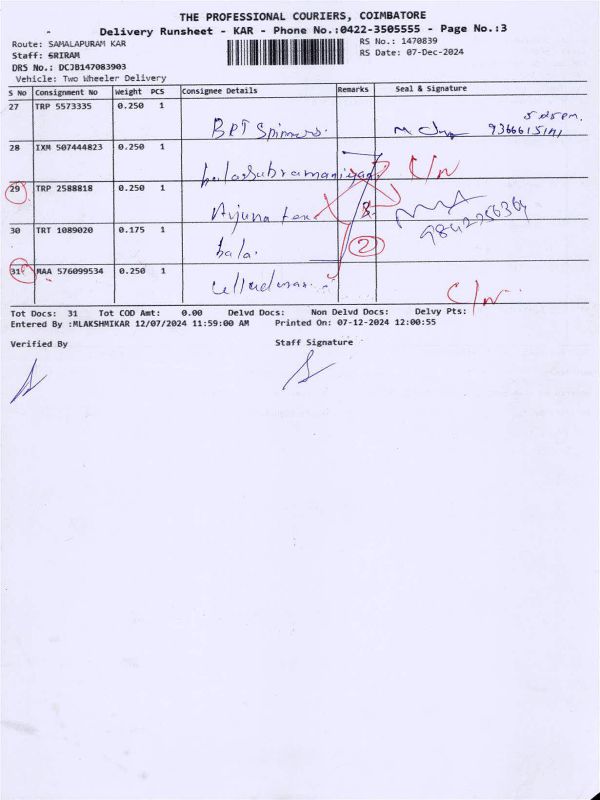 THE PROFESSIONAL COURIERS, COIMBATORE
Delivery Runsheet - KAR - Phone No.:0422-3505555 - Page No.:3
Route: SAMALAPURAM KAR
RS No.: 1470839
Staff: SRIRAM
RS Date: 07-Dec-2024
DRS No.: DCJB147083903
Vehicle: Two Wheeler Delivery
S No Consignment No Weight PCS Consignee Details Remarks Seal & Signature
27 TRP 5573335 0.250 1
5.25 pm.
BPT Spinners. 9366615141
28 IXM 507444823 0.250 1
balasubramaniyam C/N
29 TRP 2588818 0.250 1
Arjuna tex
30 TRT 1089020 0.175 1
bala. 2
31 MAA 576099534 0.250 1
C/N
Tot Docs: 31 Tot COD Amt: 0.00 Delvd Docs: Non Delvd Docs: Delvy Pts:
Entered By :MLAKSHMIKAR 12/07/2024 11:59:00 AM Printed On: 07-12-2024 12:00:55
Verified By Staff Signature